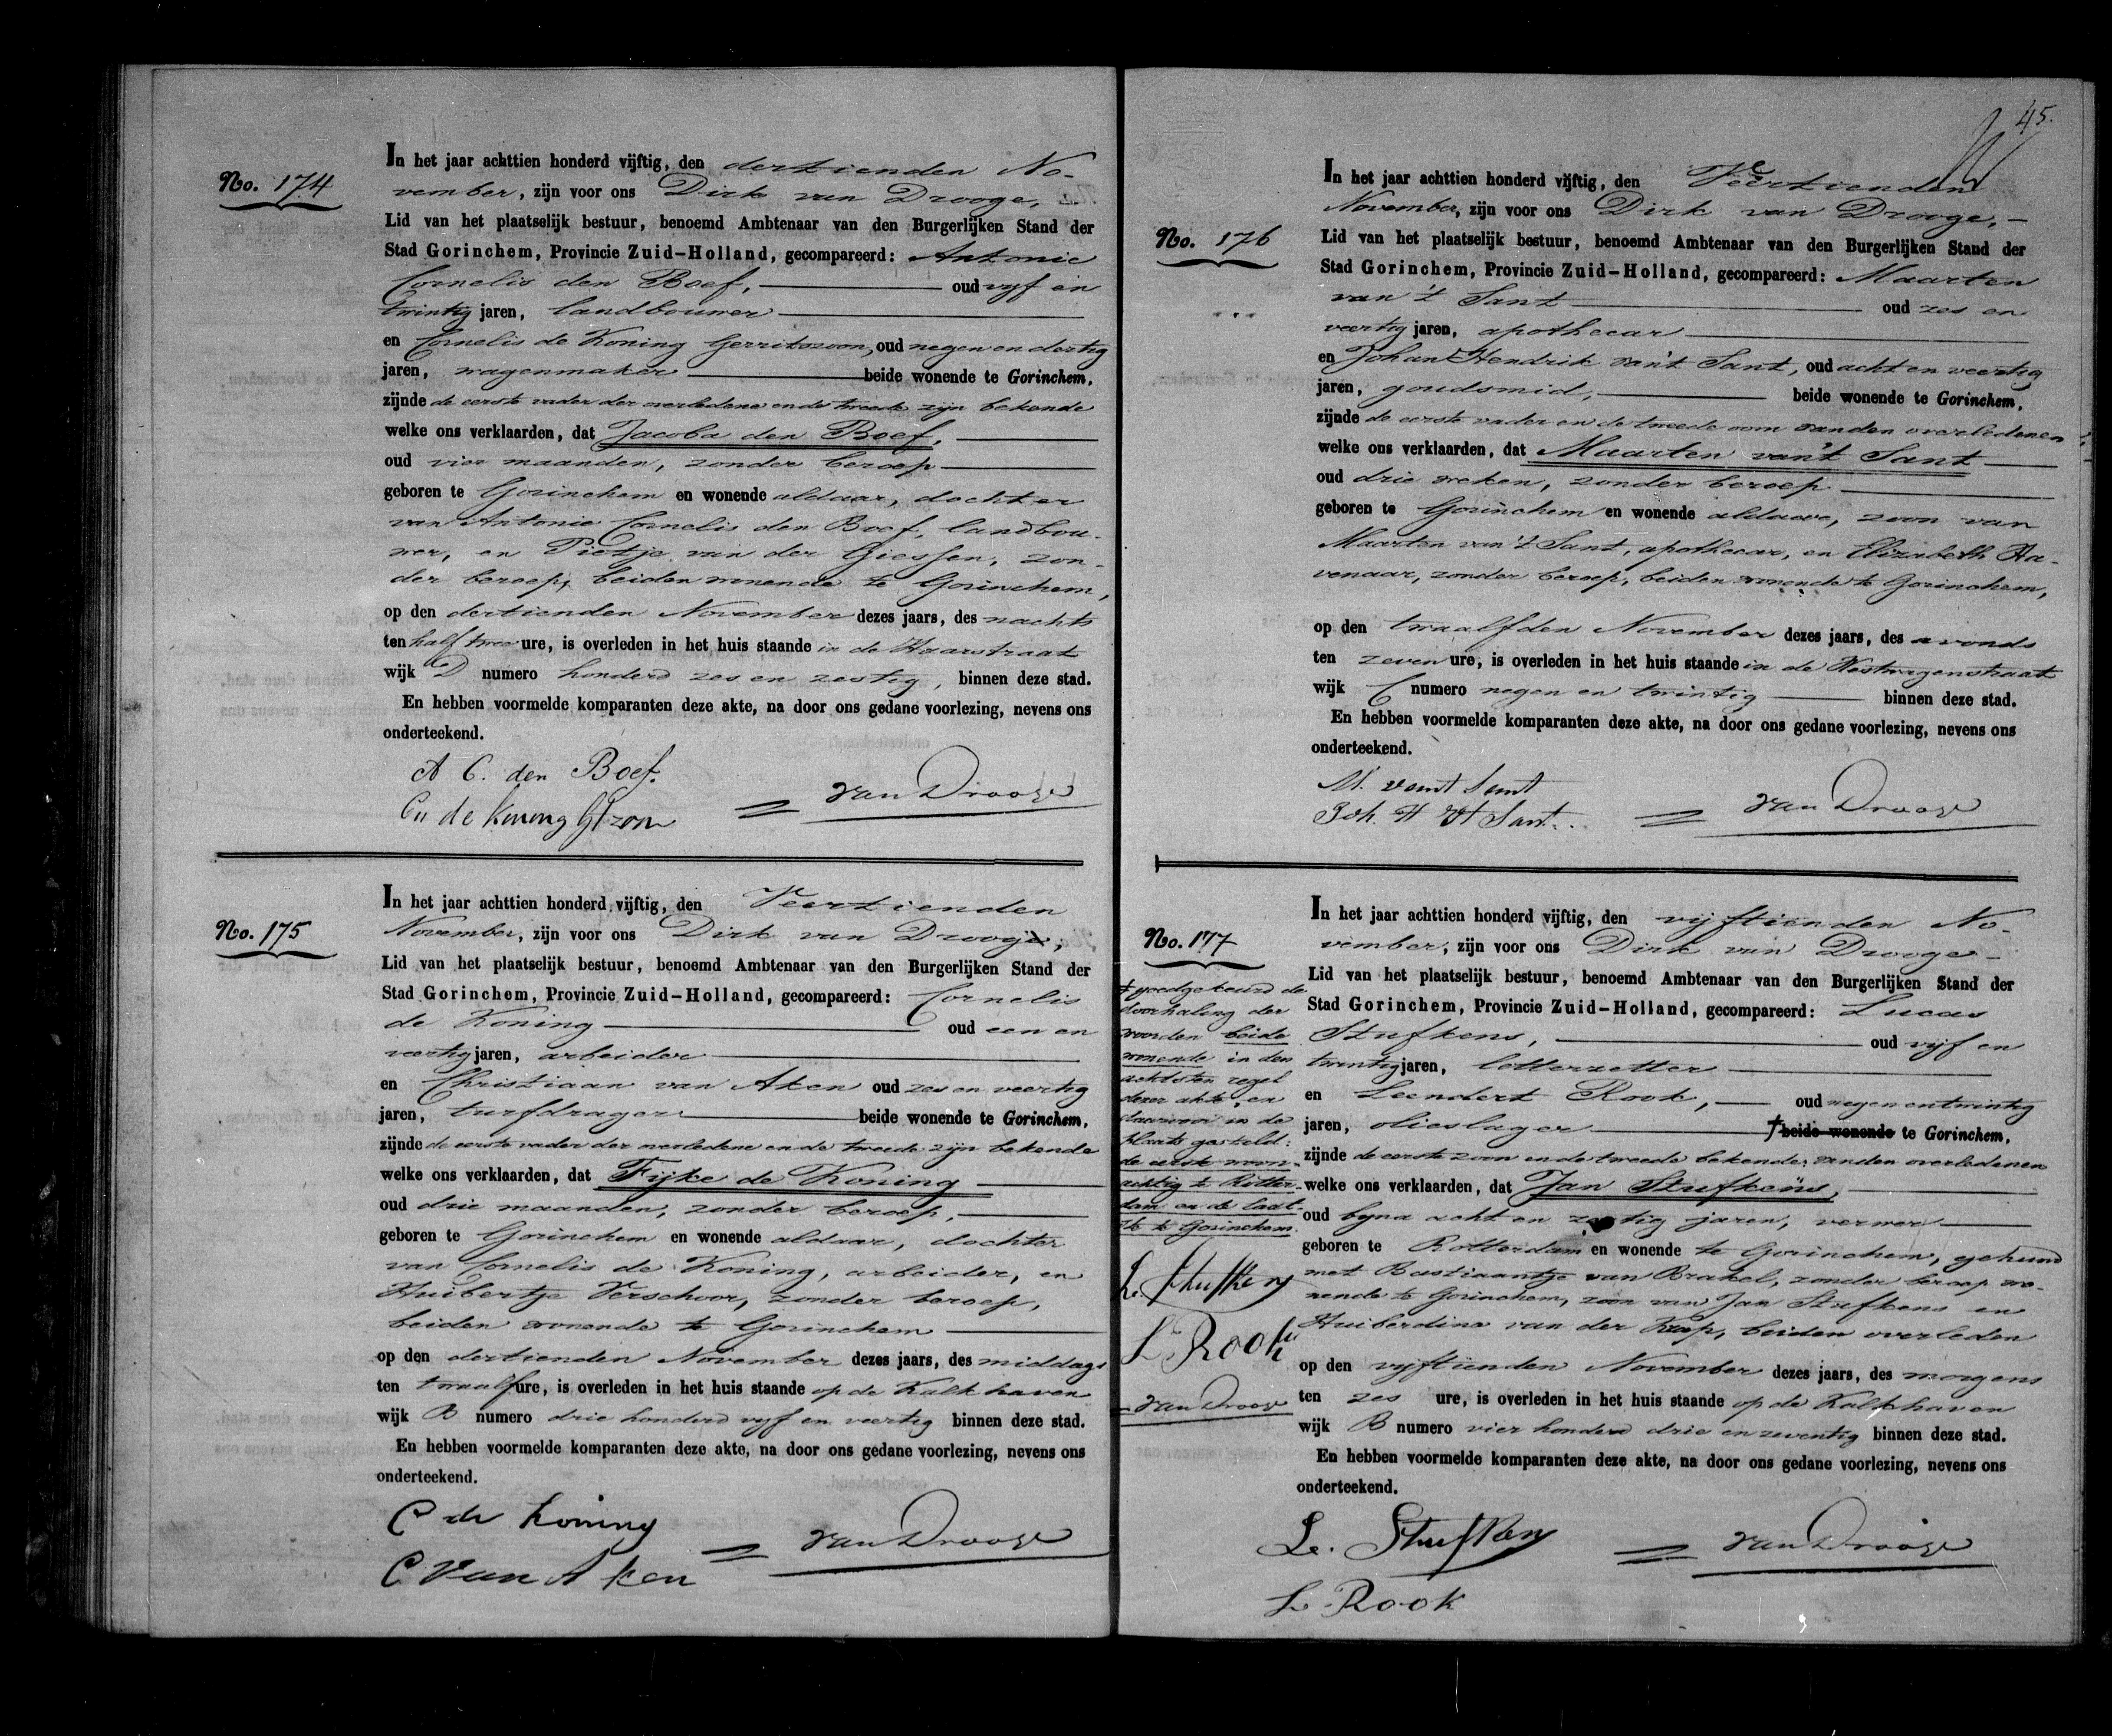 No. 174
In het jaar achttien honderd vijftig, den dertienden No-
vember, zijn voor ons Dirk van Drooge,
Lid van het plaatselijk bestuur, benoemd Ambtenaar van den Burgerlijken Stand der
Stad Gorinchem, Provincie Zuid-Holland, gecompareerd: Antonie
Cornelis den Boef, oud vyf en
twintig jaren, landbouwer
en Cornelis de Koning Gerritszoon, oud negen en dertig
jaren, wagenmaker beide wonende te Gorinchem,
zijnde de eerste vader der overledene en de tweede zijn bekende
welke ons verklaarden, dat Jacoba den Boef,
oud vier maanden, zonder beroep
geboren te Gorinchem en wonende aldaar, dochter
van Antonie Cornelis den Boef, landbou-
wer, en Pietje van der Giessen, zon-
der beroep, beiden wonende te Gorinchem,
op den dertienden November dezes jaars, des nachts
ten half twee ure, is overleden in het huis staande in de Haarstraat
wijk D numero honderd zes en zestig, binnen deze stad.
En hebben voormelde komparanten deze akte, na door ons gedane voorlezing, nevens ons
onderteekend.
A C. den Boef.
Cn de Koning Gtzoon
van Drooge
No. 175
In het jaar achttien honderd vijftig, den Veertienden
November, zijn voor ons Dirk van Drooge,
Lid van het plaatselijk bestuur, benoemd Ambtenaar van den Burgerlijken Stand der
Stad Gorinchem, Provincie Zuid-Holland, gecompareerd: Cornelis
de Koning oud een en
veertig jaren, arbeider
en Christiaan van Aken oud zes en veertig
jaren, turfdrager beide wonende te Gorinchem,
zijnde de eerste vader der overledene en de tweede zijn bekende
welke ons verklaarden, dat Fijke de Koning
oud drie maanden, zonder beroep,
geboren te Gorinchem en wonende aldaar, dochter
van Cornelis de Koning, arbeider, en
Huibertje Verschoor, zonder beroep,
beiden wonende te Gorinchem
op den dertienden November dezes jaars, des middags
ten twaalf ure, is overleden in het huis staande op de Kalkhaven
wijk B numero drie honderd vyf en veertig binnen deze stad.
En hebben voormelde komparanten deze akte, na door ons gedane voorlezing, nevens ons
onderteekend.
C de Koning
C van Aken
van Drooge
45.
No. 176
In het jaar achttien honderd vijftig, den Veertienden
November, zijn voor ons Dirk van Drooge,
Lid van het plaatselijk bestuur, benoemd Ambtenaar van den Burgerlijken Stand der
Stad Gorinchem, Provincie Zuid-Holland, gecompareerd: Maarten
van 't Sant oud zes en
veertig jaren, apothecar
en Johan Hendrik van't Sant, oud acht en veertig
jaren, goudsmid, beide wonende te Gorinchem,
zijnde de eerste vader en de tweede oom van den overledenen
welke ons verklaarden, dat Maarten van't Sant
oud drie weken, zonder beroep
geboren te Gorinchem en wonende aldaar, zoon van
Maarten van 't Sant, apothecar, en Elizabeth Ha-
venaar, zonder beroep, beiden wonende te Gorinchem,
op den twaalfden November dezes jaars, des avonds
ten zeven ure, is overleden in het huis staande in de Westwagenstraat
wijk C numero negen en twintig binnen deze stad.
En hebben voormelde komparanten deze akte, na door ons gedane voorlezing, nevens ons
onderteekend.
M. van't Sant
Joh. H v't Sant
van Drooge
No. 177
† goedgekeurd de
doorhaling der
woorden beide
wonende in den
achtsten regel
dezer akte, en
daarvoor in de
plaats gesteld:
de eerste woon-
achtig te Rotter-
dam en de laat-
ste te Gorinchem.
L. Stufkens
L Rook
van Drooge
In het jaar achttien honderd vijftig, den vijftienden No-
vember, zijn voor ons Dirk van Drooge
Lid van het plaatselijk bestuur, benoemd Ambtenaar van den Burgerlijken Stand der
Stad Gorinchem, Provincie Zuid-Holland, gecompareerd: Lucas
Stufkens, oud vijf en
twintig jaren, letterzetter
en Leendert Rook, oud negen en twintig
jaren, olieslager † beide wonende te Gorinchem,
zijnde de eerste zoon en de tweede bekende van den overledenen
welke ons verklaarden, dat Jan Stufkens,
oud byna acht en zestig jaren, verwer
geboren te Rotterdam en wonende te Gorinchem, gehuwd
met Bastiaantje van Brakel, zonder beroep wo-
nende te Gorinchem, zoon van Jan Stufkens en
Huiberdina van der Kaap, beiden overleden
op den vijftienden November dezes jaars, des morgens
ten zes ure, is overleden in het huis staande op de Kalkhaven
wijk B numero vier honderd drie en zeventig binnen deze stad.
En hebben voormelde komparanten deze akte, na door ons gedane voorlezing, nevens ons
onderteekend.
L. Stufkens
L. Rook
van Drooge